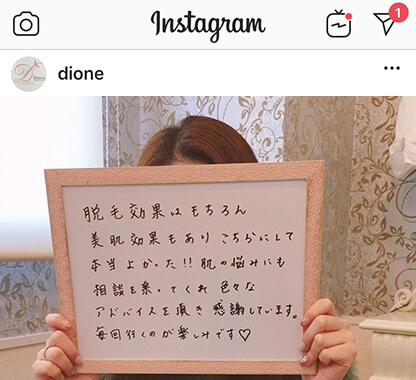 Instagram
1
dione
脱毛効果はもちろん
美肌効果もあり こちらにして
本当よかった!! 肌の悩みにも
相談を乗ってくれ 色々な
アドバイスを頂き 感謝しています。
毎回行くのが楽しみです♡